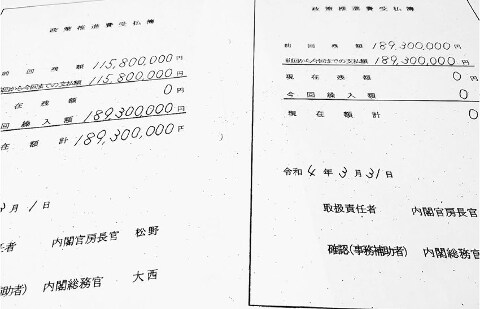 政策推進費受払簿
前回残額 115,800,000円
前回から今回までの支払額 115,800,000円
在残額 0円
回繰入額 189,300,000円
在額計 189,300,000円
月1日
任者 内閣官房長官 松野
補助者) 内閣総務官 大西
政策推進費受払簿
前回残額 189,300,000円
前回から今回までの支払額 189,300,000円
現在残額 0円
今回繰入額 0
現在額計 0
令和4年3月31日
取扱責任者 内閣官房長官
確認(事務補助者) 内閣総務官